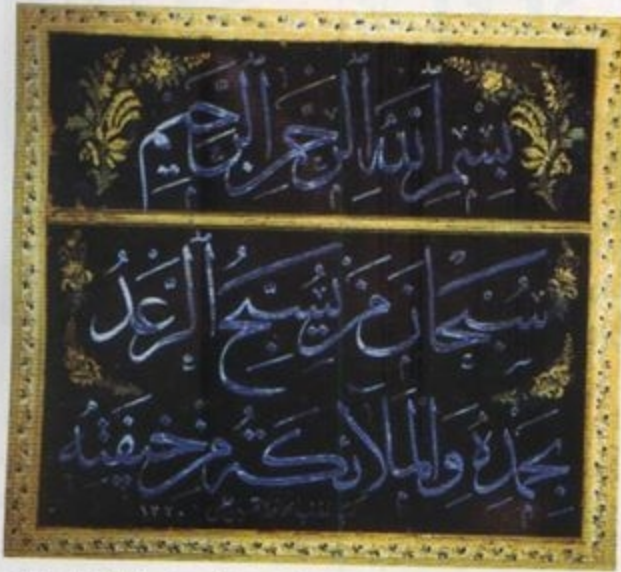 بِسْمِ اللهِ الرَّحْمٰنِ الرَّحِيمِ
سُبْحَانَ مَنْ يُسَبِّحُ الرَّعْدُ
بِحَمْدِهِ وَالْمَلَائِكَةُ مِنْ خِيفَتِهِ
١٣٢٠